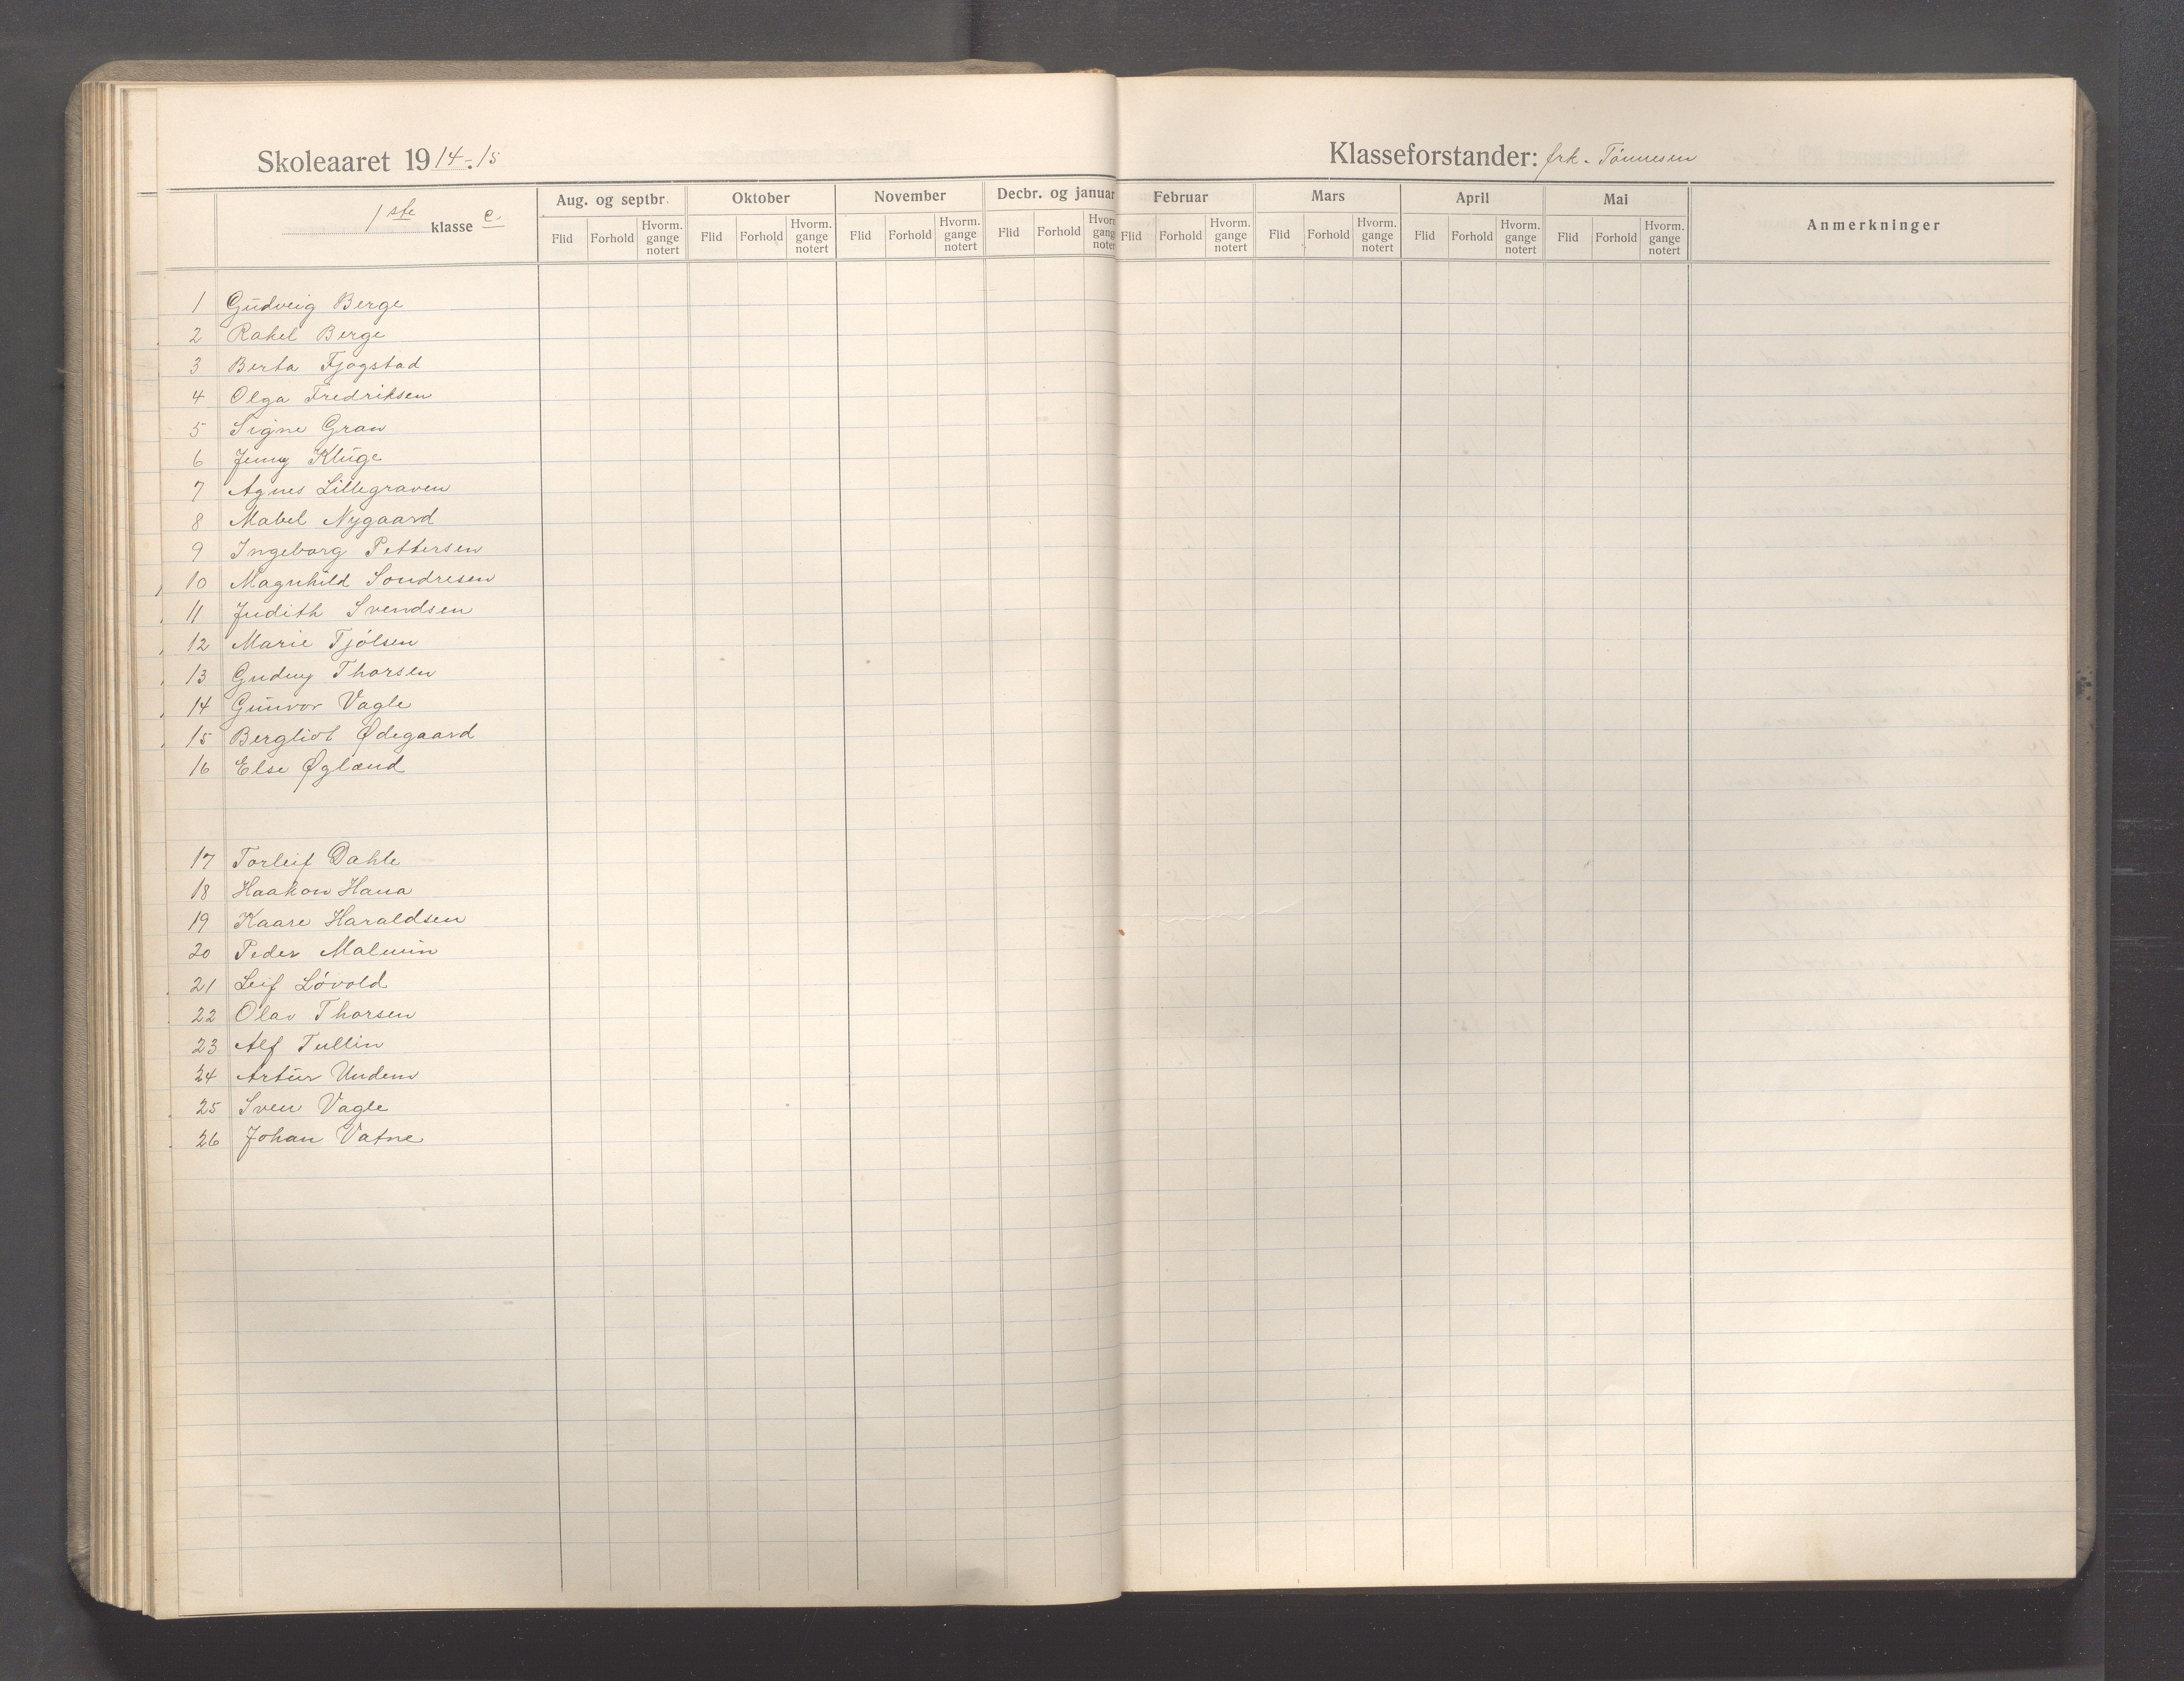 Skoleaaret 1914-15
Klasseforstander: frk. Tönnesen
1ste klasse e.
Aug. og septbr. Oktober November Decbr. og januar Februar Mars April Mai Anmerkninger
Flid Forhold Hvorm. gange notert Flid Forhold Hvorm. gange notert Flid Forhold Hvorm. gange notert Flid Forhold Hvorm. gange notert Flid Forhold Hvorm. gange notert Flid Forhold Hvorm. gange notert Flid Forhold Hvorm. gange notert Flid Forhold Hvorm. gange notert
1 Gudveig Berge
2 Rakel Berge
3 Berta Fjogstad
4 Olga Fredriksen
5 Signe Gran
6 Jenny Kluge
7 Agnes Lillegraven
8 Mabel Nygaard
9 Ingeborg Pettersen
10 Magnhild Sondresen
11 Judith Svendsen
12 Marie Tjölsen
13 Gudny Thorsen
14 Gunvor Vagle
15 Bergliot Ødegaard
16 Else Øgland
17 Torleif Dahle
18 Haakon Hana
19 Kaare Haraldsen
20 Peder Malmin
21 Leif Lövold
22 Olav Thorsen
23 Alf Tullin
24 Artur Undem
25 Sven Vagle
26 Johan Vatne